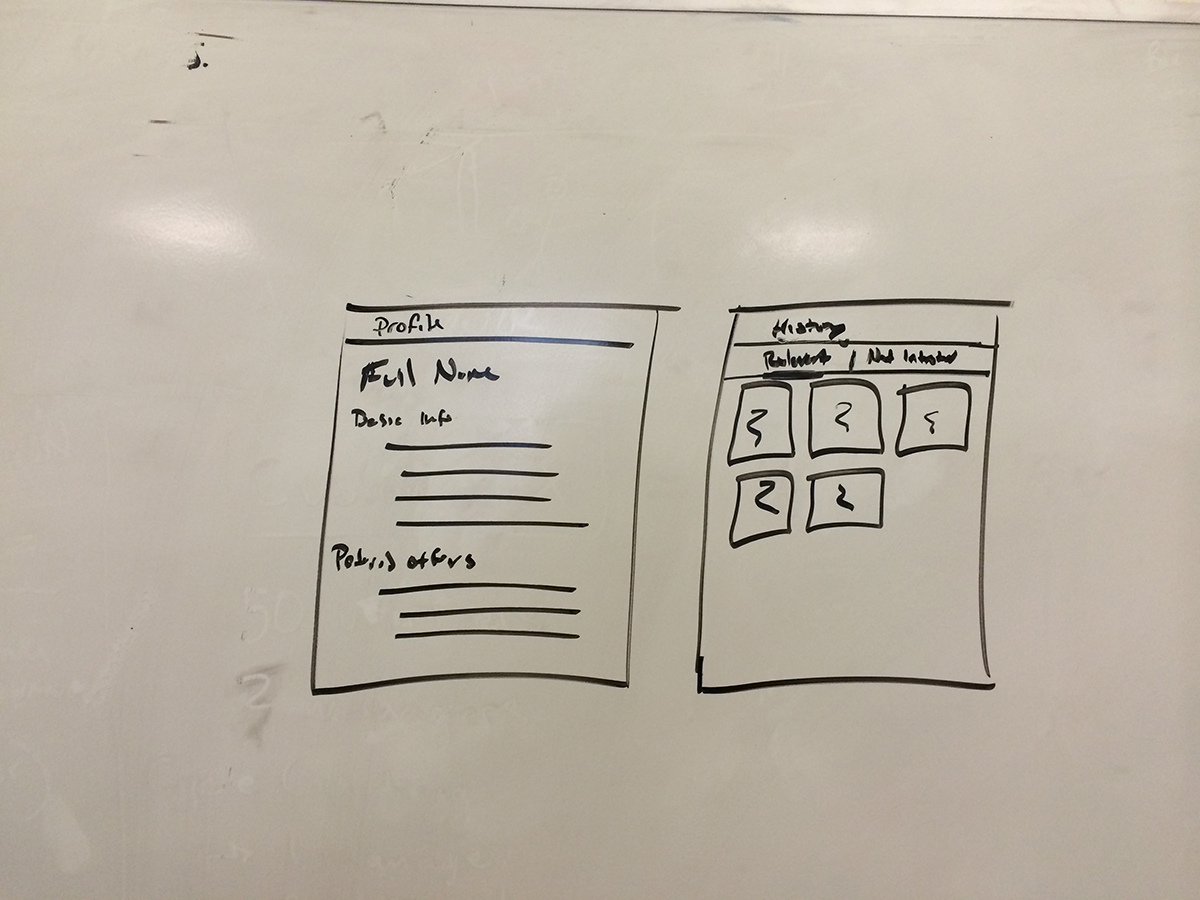 Profile
Full Name
Basic Info
offers
History
Relevant | Not Intrested